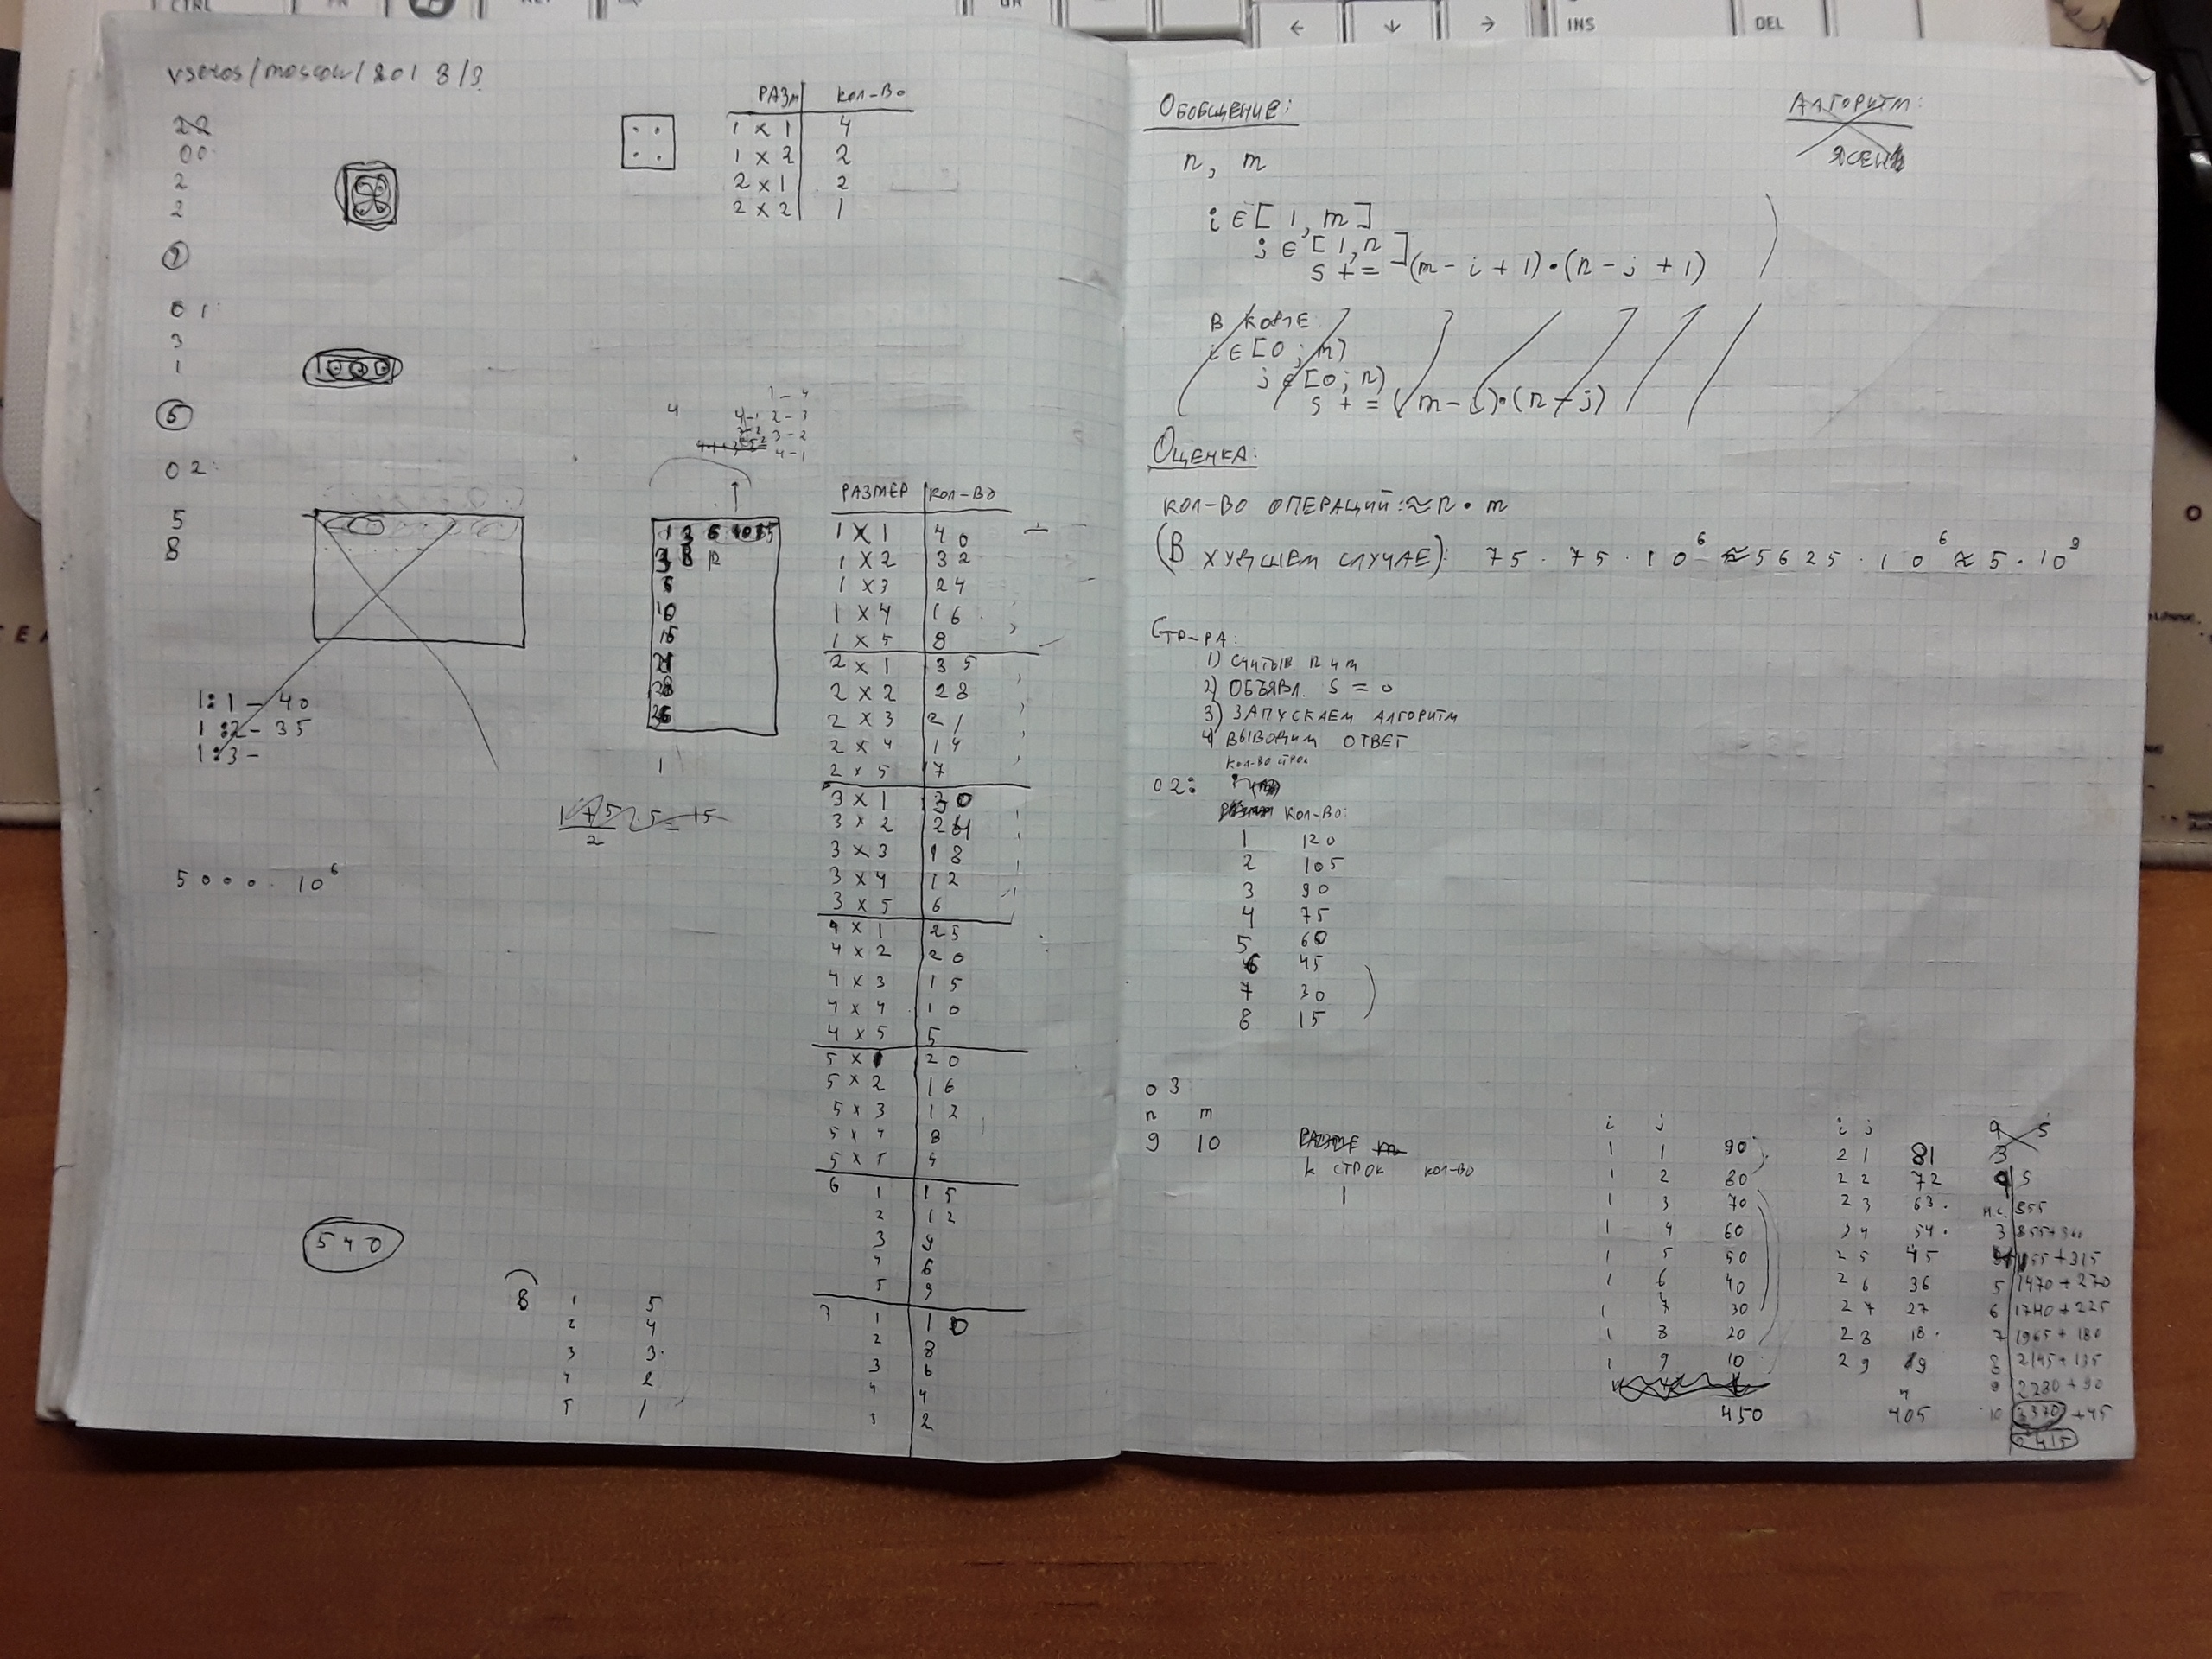 vseros/moscow/2018/3
00
2
2
9
01:
3
1
6
02:
5
8
1:1 - 40
1:2 - 35
1:3 -
5000. 10⁶
540
РАЗМ КОЛ-ВО
1 x 1 4
1 x 2 2
2 x 1 2
2 x 2 1
4
1 - 4
4-1 2 - 3
3 - 2
4 - 1
1 3 6 10 15
3 8 12
6
10
15
21
28
36
1
1 + 5 / 2 · 5 = 15
8
1 5
2 4
3 3
4 2
5 1
РАЗМЕР КОЛ-ВО
1 X 1 40
1 X 2 32
1 X 3 24
1 X 4 16
1 X 5 8
2 X 1 35
2 X 2 28
2 X 3 21
2 X 4 14
2 X 5 7
3 X 1 30
3 X 2 24
3 X 3 18
3 X 4 12
3 X 5 6
4 X 1 25
4 X 2 20
4 X 3 15
4 X 4 10
4 X 5 5
5 X 1 20
5 X 2 16
5 X 3 12
5 X 4 8
5 X 5 4
6 1 15
2 12
3 9
4 6
5
7 1 10
2 8
3 6
4 4
2
ОБОБЩЕНИЕ:
n, m
i ∈ [1, m]
j ∈ [1, n]
s += (m - i + 1) · (n - j + 1)
В КОДЕ
i ∈ [0; m)
j ∈ [0; n)
s += (m - i) · (n - j)
АЛГОРИТМ:
ЯСЕН
ОЦЕНКА:
КОЛ-ВО ОПЕРАЦИЙ: ≈ n · m
(В ХУДШЕМ СЛУЧАЕ): 75 · 75 · 10⁶ ≈ 5625 · 10⁶ ≈ 5 · 10⁹
СТР-РА:
1) СЧИТЫВ. n и m
2) ОБЪЯВЛ. S = 0
3) ЗАПУСКАЕМ АЛГОРИТМ
4) ВЫВОДИМ ОТВЕТ
КОЛ-ВО СТРОК
02:
КОЛ-ВО:
1 120
2 105
3 90
4 75
5 60
6 45
7 30
8 15
03
n m
9 10
К СТРОК КОЛ-ВО
1
i j
1 1 90
1 2 80
1 3 70
1 4 60
1 5 50
1 6 40
1 7 30
1 8 20
1 9 10
450
i j
2 1 81
2 2 72
2 3 63
2 4 54
2 5 45
2 6 36
2 7 27
2 8 18
2 9 9
405
9 5
3
н.с. 855
3 855+360
+315
5 1470+270
6 1740+225
7 1965+180
8 2145+135
9 2280+90
10 2370+45
2415